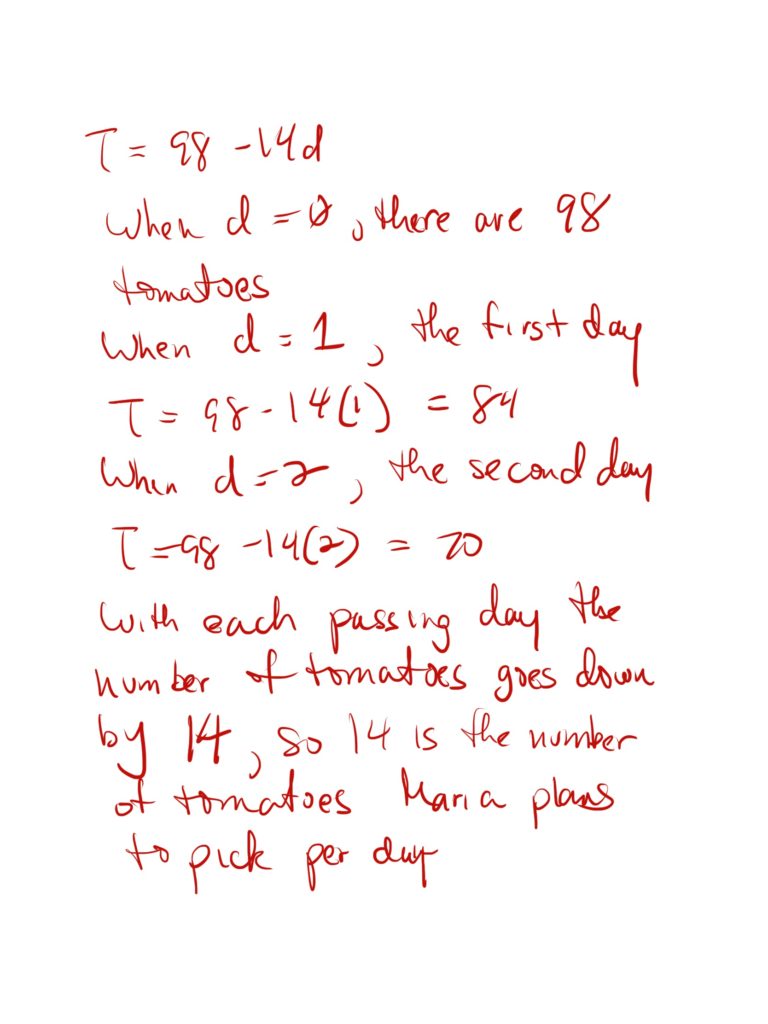 T = 98 - 14d
When d = 0, there are 98
tomatoes
When d = 1, the first day
T = 98 - 14(1) = 84
When d = 2, the second day
T = 98 - 14(2) = 70
With each passing day the
number of tomatoes goes down
by 14, so 14 is the number
of tomatoes Maria plans
to pick per day